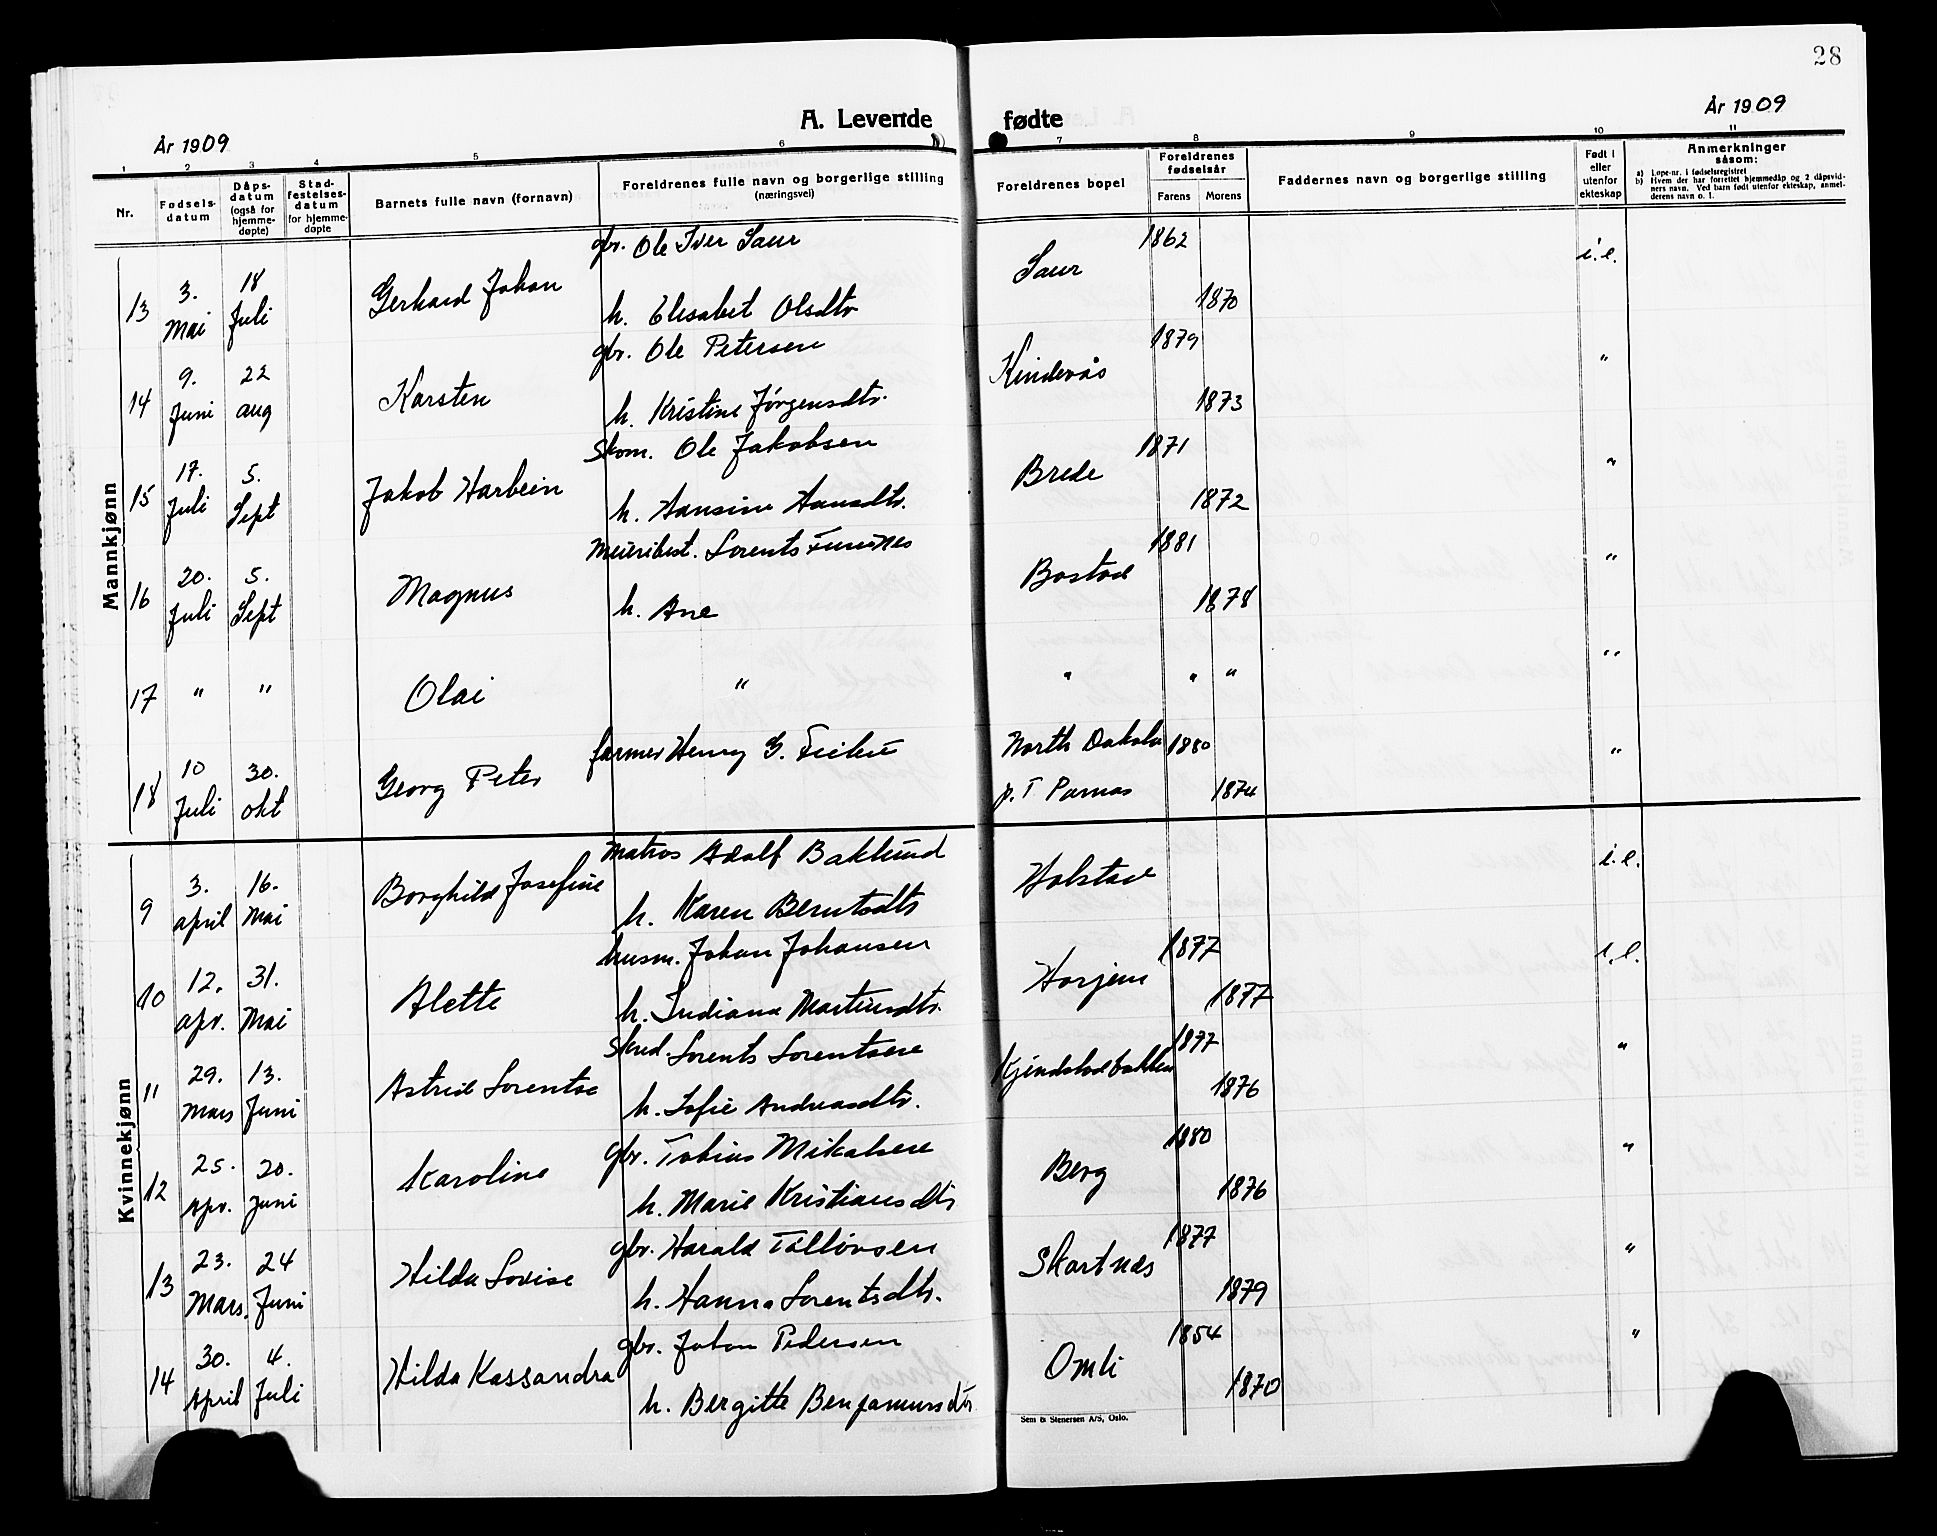 28
År 1909
A. Levende fødte
År 1909
1 2 3 4 5 6 7 8 9 10 11
Nr.
Fødsels-
datum
Dåps-
datum
(også for
hjemme-
døpte)
Stad-
festelses-
datum
for hjemme-
døpte
Barnets fulle navn (fornavn)
Foreldrenes fulle navn og borgerlige stilling
(næringsvei)
Foreldrenes bopel
Foreldrenes
fødselsår
Farens Morens
Faddernes navn og borgerlige stilling
Født i
eller
utenfor
ekteskap
Anmerkninger
såsom:
a) Løpe-nr. i fødselsregistret
b) Hvem der har forrettet hjemmedåp og 2 dåpsvid-
ners navn. Ved barn født utenfor ekteskap, anmel-
derens navn o. l.
Mannkjønn
gbr. Ole Iver Saur 1862 i.e.
13 3. Mai 18 Juli Gerhard Johan Saur
h. Elisabet Olsdtr 1870
gbr. Ole Petersen 1879
14 9. Juni 22 aug Karsten Kindevås "
h. Kristine Jørgensdtr. 1873
Skom. Ole Jakobsen 1871
15 17. Juli 5. Sept Jakob Harbein Brede "
h. Hansine Hansdtr. 1872
Meieribest. Lorents Finnes 1881
16 20. Juli 5. Sept Magnus Bostad "
h. Ane 1878
17 " " Olai " " " " "
farmer Henry G. North Dakota 1880 "
18 10 Juli 30. okt Georg Peter p.T Parnas 1874
Kvinnekjønn
Matros Adolf Baklund i.e.
9 3. april 16. Mai Borghild Josefine Holstad
h. Karen Berntsdtr
husm. Johan Johansen 1877 i.e.
10 12. apr. 31. Mai Alette Horjem
h. Indiana Martinsdtr. 1877
Skred. Lorents Lorentsen 1877
11 29. Mars 13. Juni Astrid Lorentse Kjindstadbakken "
h. Sofie Andreasdtr. 1876
gbr. Tobias Mikalsen 1880
12 25. Apr. 20. Juni Karoline Berg "
h. Marie Kristiansdtr 1876
gbr. Harald Tollevsen 1877
13 23. Mars. 24 Juni Hilda Lovise Skartnes "
h. Hanna Lorentsdtr. 1879
gbr. Johan Pedersen 1854
14 30. April 4. Juli Hilda Kassandra Omli "
h. Bergitte Benjaminsdtr 1870
Sem & Stenersen A/S, Oslo.